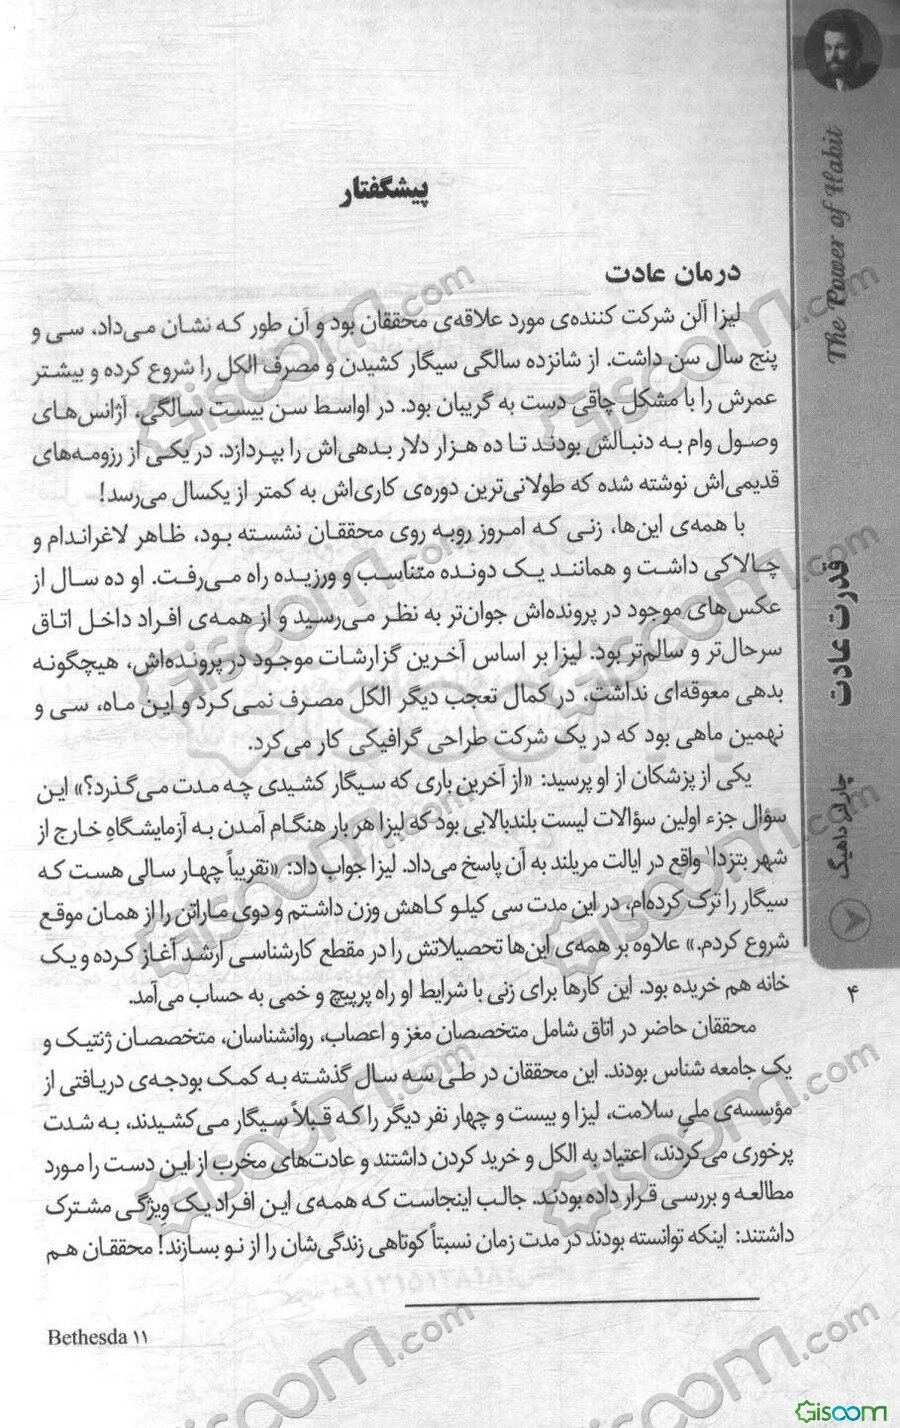 The Power of Habit
قدرت عادت
چارلز داهیگ
۴
پیشگفتار
درمان عادت
لیزا آلن شرکت کننده‌ی مورد علاقه‌ی محققان بود و آن طور که نشان می‌داد، سی و
پنج سال سن داشت. از شانزده سالگی سیگار کشیدن و مصرف الکل را شروع کرده و بیشتر
عمرش را با مشکل چاقی دست به گریبان بود. در اواسط سن بیست سالگی، آژانس‌های
وصول وام به دنبالش بودند تا ده هزار دلار بدهی‌اش را بپردازد. در یکی از رزومه‌های
قدیمی‌اش نوشته شده که طولانی‌ترین دوره‌ی کاری‌اش به کمتر از یکسال می‌رسد!
با همه‌ی این‌ها، زنی که امروز روبه روی محققان نشسته بود، ظاهر لاغراندام و
چالاکی داشت و همانند یک دونده متناسب و ورزیده راه می‌رفت. او ده سال از
عکس‌های موجود در پرونده‌اش جوان‌تر به نظر می‌رسید و از همه‌ی افراد داخل اتاق
سرحال‌تر و سالم‌تر بود. لیزا بر اساس آخرین گزارشات موجود در پرونده‌اش، هیچگونه
بدهی معوقه‌ای نداشت، در کمال تعجب دیگر الکل مصرف نمی‌کرد و این ماه، سی و
نهمین ماهی بود که در یک شرکت طراحی گرافیکی کار می‌کرد.
یکی از پزشکان از او پرسید: «از آخرین باری که سیگار کشیدی چه مدت می‌گذرد؟» این
سؤال جزء اولین سؤالات لیست بلندبالایی بود که لیزا هر بار هنگام آمدن به آزمایشگاهِ خارج از
شهر بتزدا۱ واقع در ایالت مریلند به آن پاسخ می‌داد. لیزا جواب داد: «تقریباً چهار سالی هست که
سیگار را ترک کرده‌ام، در این مدت سی کیلو کاهش وزن داشتم و دوی ماراتن را از همان موقع
شروع کردم.» علاوه بر همه‌ی این‌ها تحصیلاتش را در مقطع کارشناسی ارشد آغاز کرده و یک
خانه هم خریده بود. این کارها برای زنی با شرایط او راه پرپیچ و خمی به حساب می‌آمد.
محققان حاضر در اتاق شامل متخصصان مغز و اعصاب، روانشناسان، متخصصان ژنتیک و
یک جامعه شناس بودند. این محققان در طی سه سال گذشته به کمک بودجه‌ی دریافتی از
مؤسسه‌ی ملیِ سلامت، لیزا و بیست و چهار نفر دیگر را که قبلاً سیگار می‌کشیدند، به شدت
پرخوری می‌کردند، اعتیاد به الکل و خرید کردن داشتند و عادت‌های مخرب از این دست را مورد
مطالعه و بررسی قرار داده بودند. جالب اینجاست که همه‌ی این افراد یک ویژگی مشترک
داشتند: اینکه توانسته بودند در مدت زمان نسبتاً کوتاهی زندگی‌شان را از نو بسازند! محققان هم
Bethesda ۱۱
Gisoom.com
Gisoom